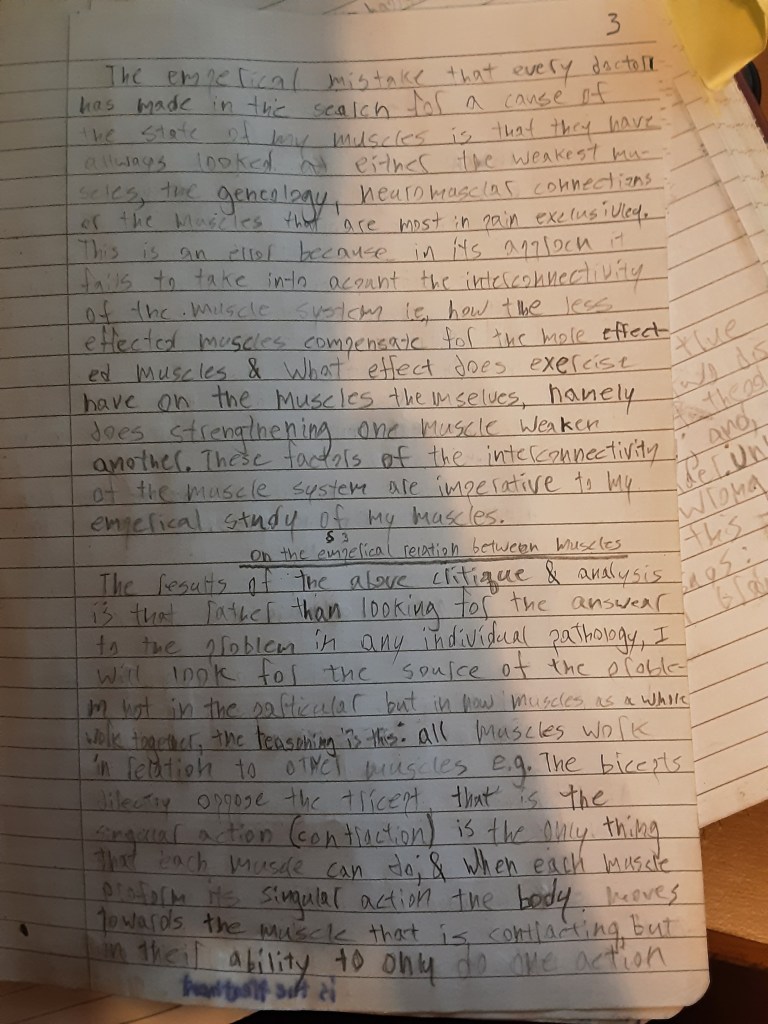 3
The emperical mistake that every doctor
has made in the search for a cause of
the state of my muscles is that they have
allways looked at either the weakest mu-
scles, the geneology, neuromasclar connections
or the muscles that are most in pain exclusivley.
This is an error because in its approch it
fails to take into acount the interconnectivity
of the muscle system ie, how the less
effected muscles compensate for the more effect-
ed muscles & what effect does exercise
have on the muscles themselves, namely
does strengthening one muscle weaken
another. These factors of the interconnectivity
of the muscle system are imperative to my
emperical study of my muscles.
§ 3
on the emperical relation between muscles
The results of the above critique & analysis
is that rather than looking for the answear
to the problem in any individual pathology, I
will look for the source of the proble-
m not in the particular but in how muscles as a whole
work together, the reasoning is this: all muscles work
in relation to other muscles e.g. The biceps
directly oppose the tricept, that is the
singular action (contraction) is the only thing
that each muscle can do; & when each muscle
proform its singular action the body moves
towards the muscle that is contracting, but
in their ability to only do one action
true
and,
wrong
this